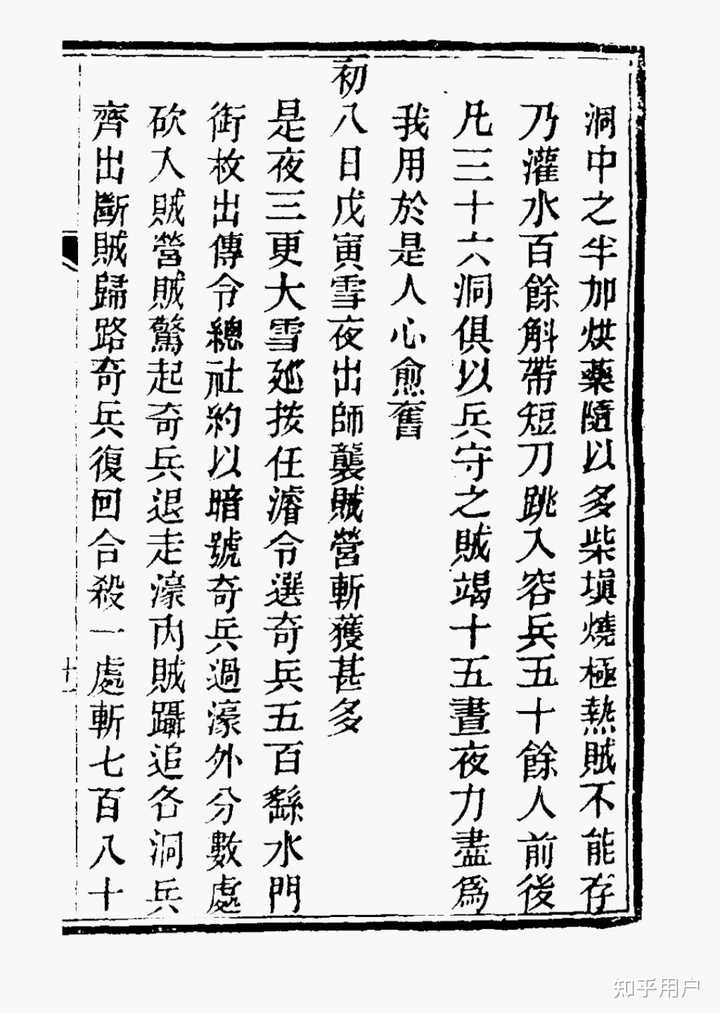 洞中之半加烘藥隨以多柴塡燒極熱賊不能存
乃灌水百餘斛帶短刀跳入容兵五十餘人前後
凡三十六洞俱以兵守之賊竭十五晝夜力盡爲
我用於是人心愈奮
初八日戊寅雪夜出師襲賊營斬獲甚多
是夜三更大雪廵按任濬令選奇兵五百繇水門
銜枚出傳令總社約以暗號奇兵過濠外分數處
砍入賊營賊驚起奇兵退走濠內賊躡追各洞兵
齊出斷賊歸路奇兵復回合殺一處斬七百八十
十一
知乎用户